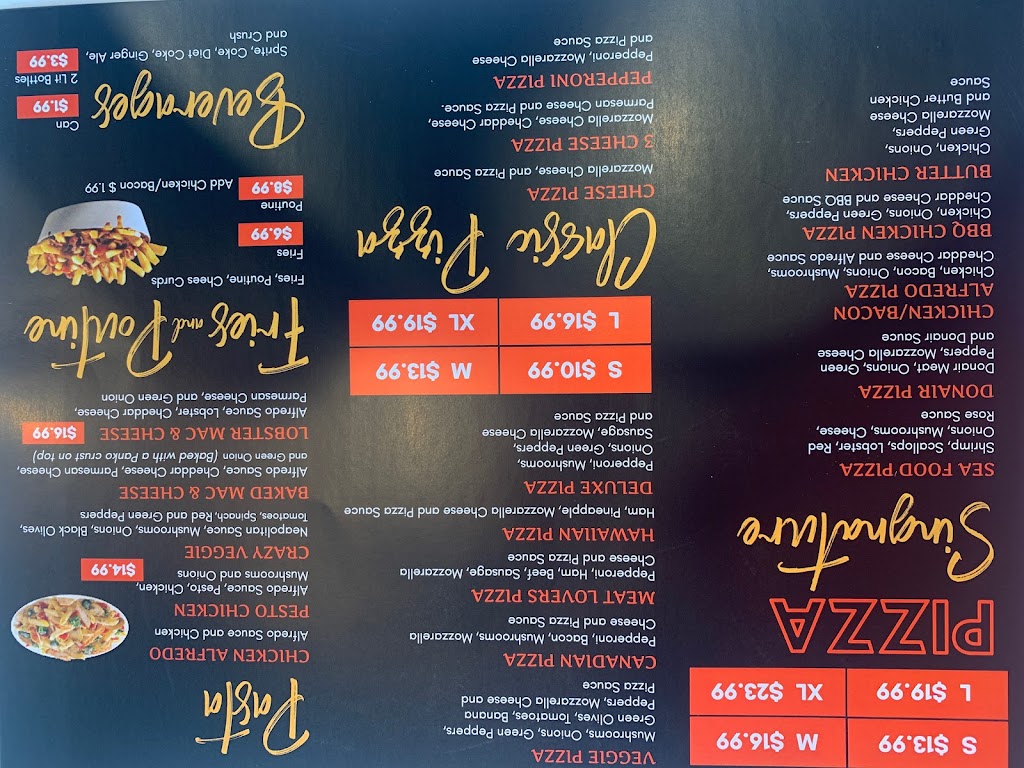 S $13.99 M $16.99
L $19.99 XL $23.99
PIZZA
Singnature
SEA FOOD PIZZA
Shrimp, Scallops, Lobster Red,
Onions, Mushrooms, Cheese,
Rose Sauce
DONAIR PIZZA
Donair Meat, Onions, Green
Peppers, Mozzarella Cheese
and Donair Sauce
CHICKEN/BACON
ALFREDO PIZZA
Chicken, Bacon, Onions, Mushrooms,
Cheddar Cheese and Alfredo Sauce
BBQ CHICKEN PIZZA
Chicken, Onions, Green Peppers,
Cheddar Cheese and BBQ Sauce
BUTTER CHICKEN
Chicken, Onions,
Green Peppers,
Mozzarella Cheese
and Butter Chicken
Sauce
VEGGIE PIZZA
Mushrooms, Onions, Green Peppers,
Green Olives, Tomatoes, Banana
Peppers, Mozzarella Cheese and
Pizza Sauce
CANADIAN PIZZA
Pepperoni, Bacon, Mushrooms, Mozzarella
Cheese and Pizza Sauce
MEAT LOVERS PIZZA
Pepperoni, Ham, Beef, Sausage, Mozzarella
Cheese and Pizza Sauce
HAWAIIAN PIZZA
Ham, Pineapple, Mozzarella Cheese and Pizza Sauce
DELUXE PIZZA
Pepperoni, Mushrooms,
Onions, Green Peppers,
Sausage, Mozzarella Cheese
and Pizza Sauce
S $10.99 M $13.99
L $16.99 XL $19.99
Classic Pizza
CHEESE PIZZA
Mozzarella Cheese, and Pizza Sauce
3 CHEESE PIZZA
Mozzarella Cheese, Cheddar Cheese,
Parmesan Cheese and Pizza Sauce.
PEPPERONI PIZZA
Pepperoni, Mozzarella Cheese
and Pizza Sauce
Pasta
CHICKEN ALFREDO
Alfredo Sauce and Chicken
PESTO CHICKEN
Alfredo Sauce, Pesto, Chicken,
Mushrooms and Onions $14.99
CRAZY VEGGIE
Neapolitan Sauce, Mushrooms, Onions, Black Olives,
Tomatoes, Spinach, Red and Green Peppers
BAKED MAC & CHEESE
Alfredo Sauce, Cheddar Cheese, Parmesan Cheese,
and Green Onion (Baked with a Panko crust on top)
LOBSTER MAC & CHEESE $16.99
Alfredo Sauce, Lobster, Cheddar Cheese,
Parmesan Cheese, and Green Onion
Fries and Poutine
Fries, Poutine, Chees Curds
Fries
$6.99
Poutine
$8.99 Add Chicken/Bacon $ 1.99
Beverages
Can
$1.99
2 Lit Bottles
$3.99
Sprite, Coke, Diet Coke, Ginger Ale,
and Crush